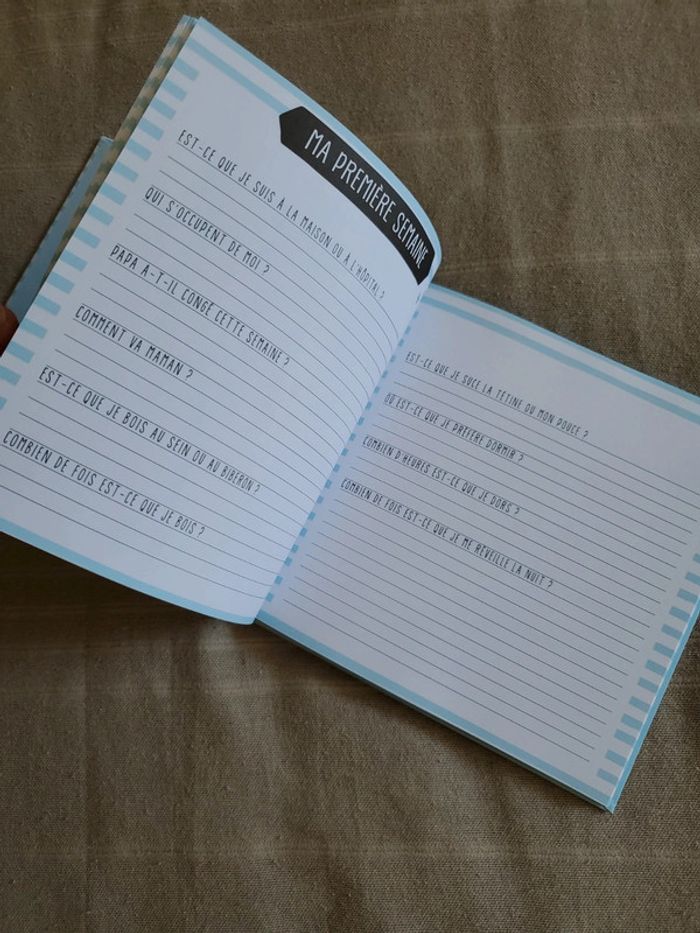 MA PREMIÈRE SEMAINE
EST-CE QUE JE SUIS À LA MAISON OU À L'HÔPITAL ?
QUI S'OCCUPENT DE MOI ?
PAPA A-T-IL CONGÉ CETTE SEMAINE ?
COMMENT VA MAMAN ?
EST-CE QUE JE BOIS AU SEIN OU AU BIBERON ?
COMBIEN DE FOIS EST-CE QUE JE BOIS ?
EST-CE QUE JE SUCE LA TÉTINE OU MON POUCE ?
OÙ EST-CE QUE JE PRÉFÈRE DORMIR ?
COMBIEN D'HEURES EST-CE QUE JE DORS ?
COMBIEN DE FOIS EST-CE QUE JE ME RÉVEILLE LA NUIT ?